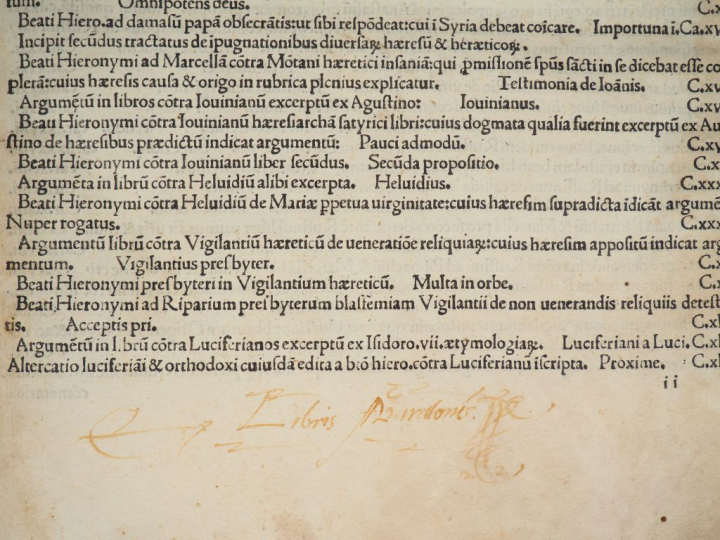 tum. Omnipotens deus.
Beati Hiero.ad damasū papā obsecrātis:ut sibi respōdeat:cui ī Syria debeat cōicare. Importuna ī. Ca.xv
Incipit secūdus tractatus de īpugnationibus diuersaꝝ hæresū & hæræticoꝝ.
Beati Hieronymi ad Marcellā cōtra Mōtani hæretici insaniā:qui ꝓmissionē spūs sācti in se dicebat esse co
plerā:cuius hæresis causa & origo in rubrica plenius explicatur. Testimonia de Ioānis. C.xv
Argumētū in libros cōtra Iouinianū excerptū ex Agustino: Iouinianus. C.xv
Beati Hieronymi cōtra Iouinianū hæresiarchā satyrici libri:cuius dogmata qualia fuerint excerptū ex Au
stino de hæresibus prædictū indicat argumentū: Pauci admodū. C.xv
Beati Hieronymi cōtra Iouinianū liber secūdus. Secūda propositio. C.xx
Argumēta in librū cōtra Heluidiū alibi excerpta. Heluidius. C.xxx
Beati Hieronymi cōtra Heluidiū de Mariæ ꝑpetua uirginitate:cuius hæresim supradicta īdicāt argumē
Nuper rogatus. C.xxx
Argumentū librū cōtra Vigilantiū hæreticū de ueneratiōe reliquiaꝝ:cuius hæresim appositū indicat arg
mentum. Vigilantius presbyter. C.x
Beati Hieronymi presbyteri in Vigilantium hæreticū. Multa in orbe. C.x
Beati Hieronymi ad Riparium presbyterum blasfemiam Vigilantii de non uenerandis reliquiis detest
tis. Acceptis pri. C.xl
Argumētū in librū cōtra Luciferianos excerptū ex Isidoro.vii.ætymologiaꝝ. Luciferiani a Luci. C.xl
Altercatio luciferiāi & orthodoxi cuiusdā edita a btō hiero.cōtra Luciferianū īscripta. Proxime. C.xl
ii
Libris